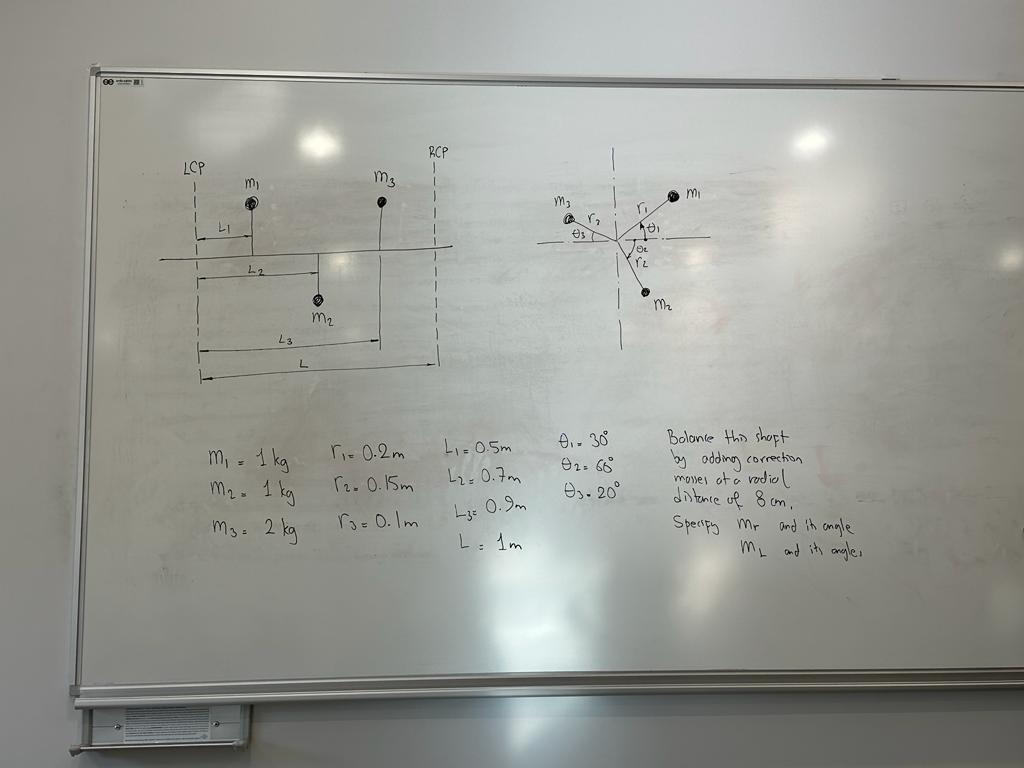 LCP
RCP
m1
m3
L1
L2
m2
L3
L
m3
r2
θ3
r1
m1
θ1
θ2
r2
m2
m1 = 1 kg
m2 = 1 kg
m3 = 2 kg
r1 = 0.2m
r2 = 0.15m
r3 = 0.1m
L1 = 0.5m
L2 = 0.7m
L3 = 0.9m
L = 1m
θ1 = 30°
θ2 = 60°
θ3 = 20°
Balance this shaft
by adding correction
masses at a radial
distance of 8 cm.
Specify mr and its angle
mL and its angle.